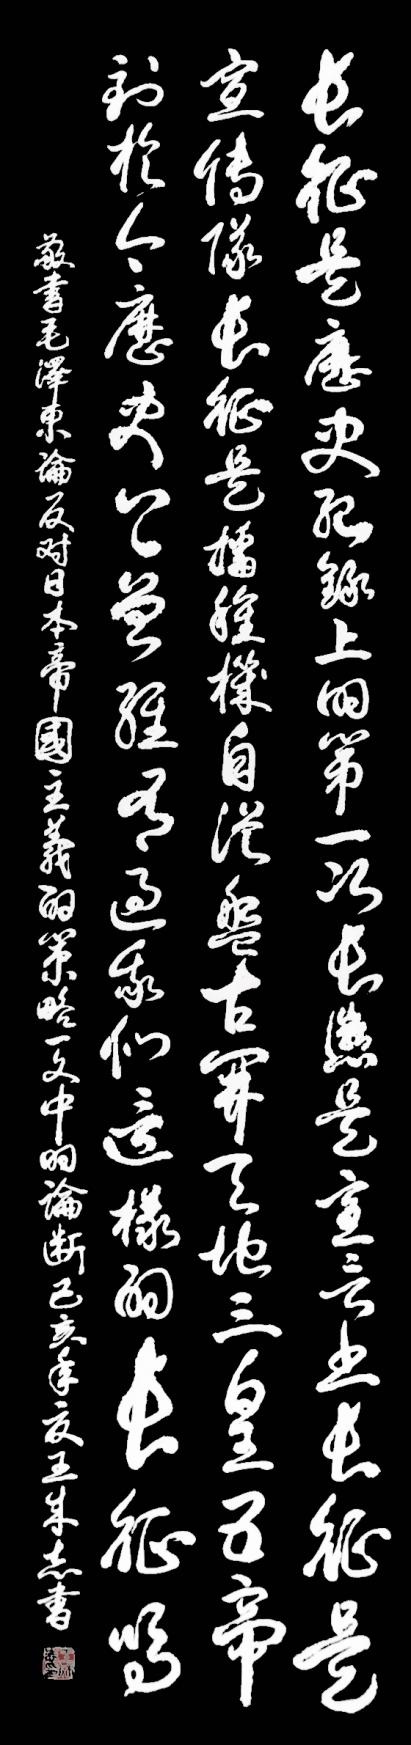 長征是歷史紀錄上的第一次長懲是宣言书長征是
宣傳隊長征是播種機自從盤古開天地三皇五帝
到於今歷史上曾經有過我們這樣的長征嗎
敬書毛澤東論反对日本帝國主義的策略一文中的論斷己亥年夏王志書